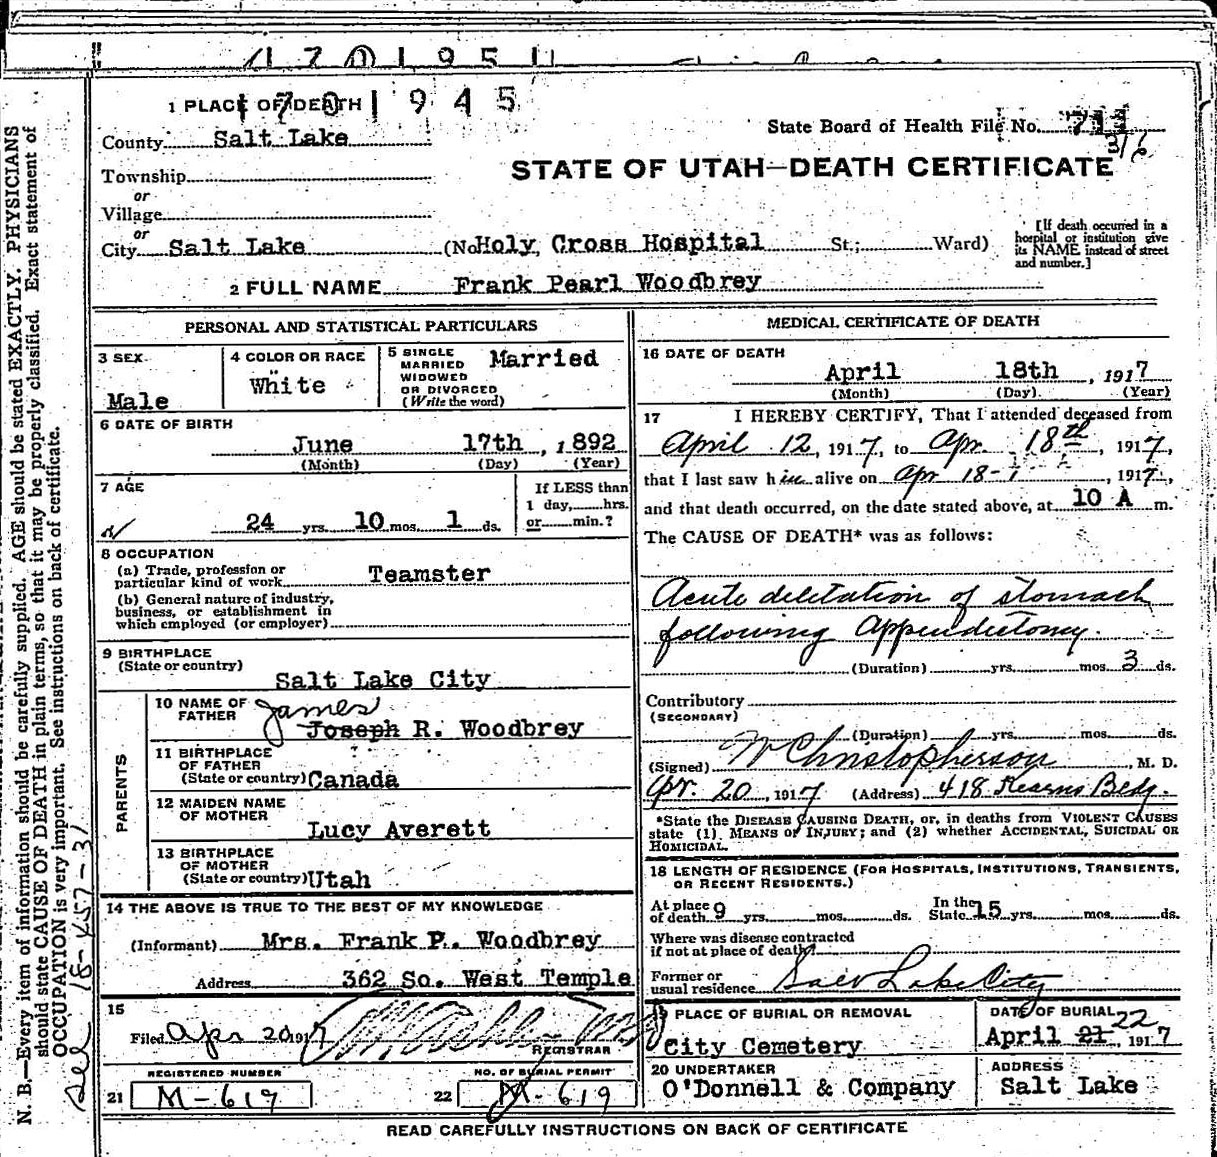 1 PLACE OF DEATH 1701945
State Board of Health File No. 711
County Salt Lake
316
STATE OF UTAH—DEATH CERTIFICATE
Township
or
Village
or
City Salt Lake (No. Holy Cross Hospital St.; Ward)
[If death occurred in a hospital or institution give its NAME instead of street and number.]
2 FULL NAME Frank Pearl Woodbrey
PERSONAL AND STATISTICAL PARTICULARS
3 SEX
Male
4 COLOR OR RACE
White
5 SINGLE
MARRIED
WIDOWED
OR DIVORCED
(Write the word)
Married
6 DATE OF BIRTH
June 17th, 1892
(Month) (Day) (Year)
7 AGE
24 yrs. 10 mos. 1 ds.
If LESS than
1 day, hrs.
or min.?
8 OCCUPATION
(a) Trade, profession or
particular kind of work Teamster
(b) General nature of industry,
business, or establishment in
which employed (or employer)
9 BIRTHPLACE
(State or country)
Salt Lake City
PARENTS
10 NAME OF
FATHER
James
Joseph R. Woodbrey
11 BIRTHPLACE
OF FATHER
(State or country) Canada
12 MAIDEN NAME
OF MOTHER
Lucy Averett
13 BIRTHPLACE
OF MOTHER
(State or country) Utah
14 THE ABOVE IS TRUE TO THE BEST OF MY KNOWLEDGE
(Informant) Mrs. Frank P. Woodbrey
Address 362 So. West Temple
15
Filed Apr 20 1917
REGISTRAR
REGISTERED NUMBER
21 M-619
NO. OF BURIAL PERMIT
22 M-619
MEDICAL CERTIFICATE OF DEATH
16 DATE OF DEATH
April 18th, 1917
(Month) (Day) (Year)
17 I HEREBY CERTIFY, That I attended deceased from
April 12, 1917, to Apr. 18th, 1917,
that I last saw him alive on Apr 18-, 1917,
and that death occurred, on the date stated above, at 10 A m.
The CAUSE OF DEATH* was as follows:
Acute delitation of stomach
following Appendictomy.
(Duration) yrs. mos. 3 ds.
Contributory
(SECONDARY)
(Duration) yrs. mos. ds.
(Signed) W Christopherson, M. D.
Apr. 20, 1917 (Address) 418 Kearns Bldg.
*State the DISEASE CAUSING DEATH, or, in deaths from VIOLENT CAUSES
state (1) MEANS OF INJURY; and (2) whether ACCIDENTAL, SUICIDAL OR
HOMICIDAL.
18 LENGTH OF RESIDENCE (FOR HOSPITALS, INSTITUTIONS, TRANSIENTS,
OR RECENT RESIDENTS.)
At place
of death 9 yrs. mos. ds.
In the
State 15 yrs. mos. ds.
Where was disease contracted
if not at place of death?
Former or
usual residence Salt Lake City
19 PLACE OF BURIAL OR REMOVAL
City Cemetery
DATE OF BURIAL
22
April 21, 1917
20 UNDERTAKER
O'Donnell & Company
ADDRESS
Salt Lake
READ CAREFULLY INSTRUCTIONS ON BACK OF CERTIFICATE
N. B.—Every item of information should be carefully supplied. AGE should be stated EXACTLY. PHYSICIANS
should state CAUSE OF DEATH in plain terms, so that it may be properly classified. Exact statement of
OCCUPATION is very important. See instructions on back of certificate.
See 18-457-31